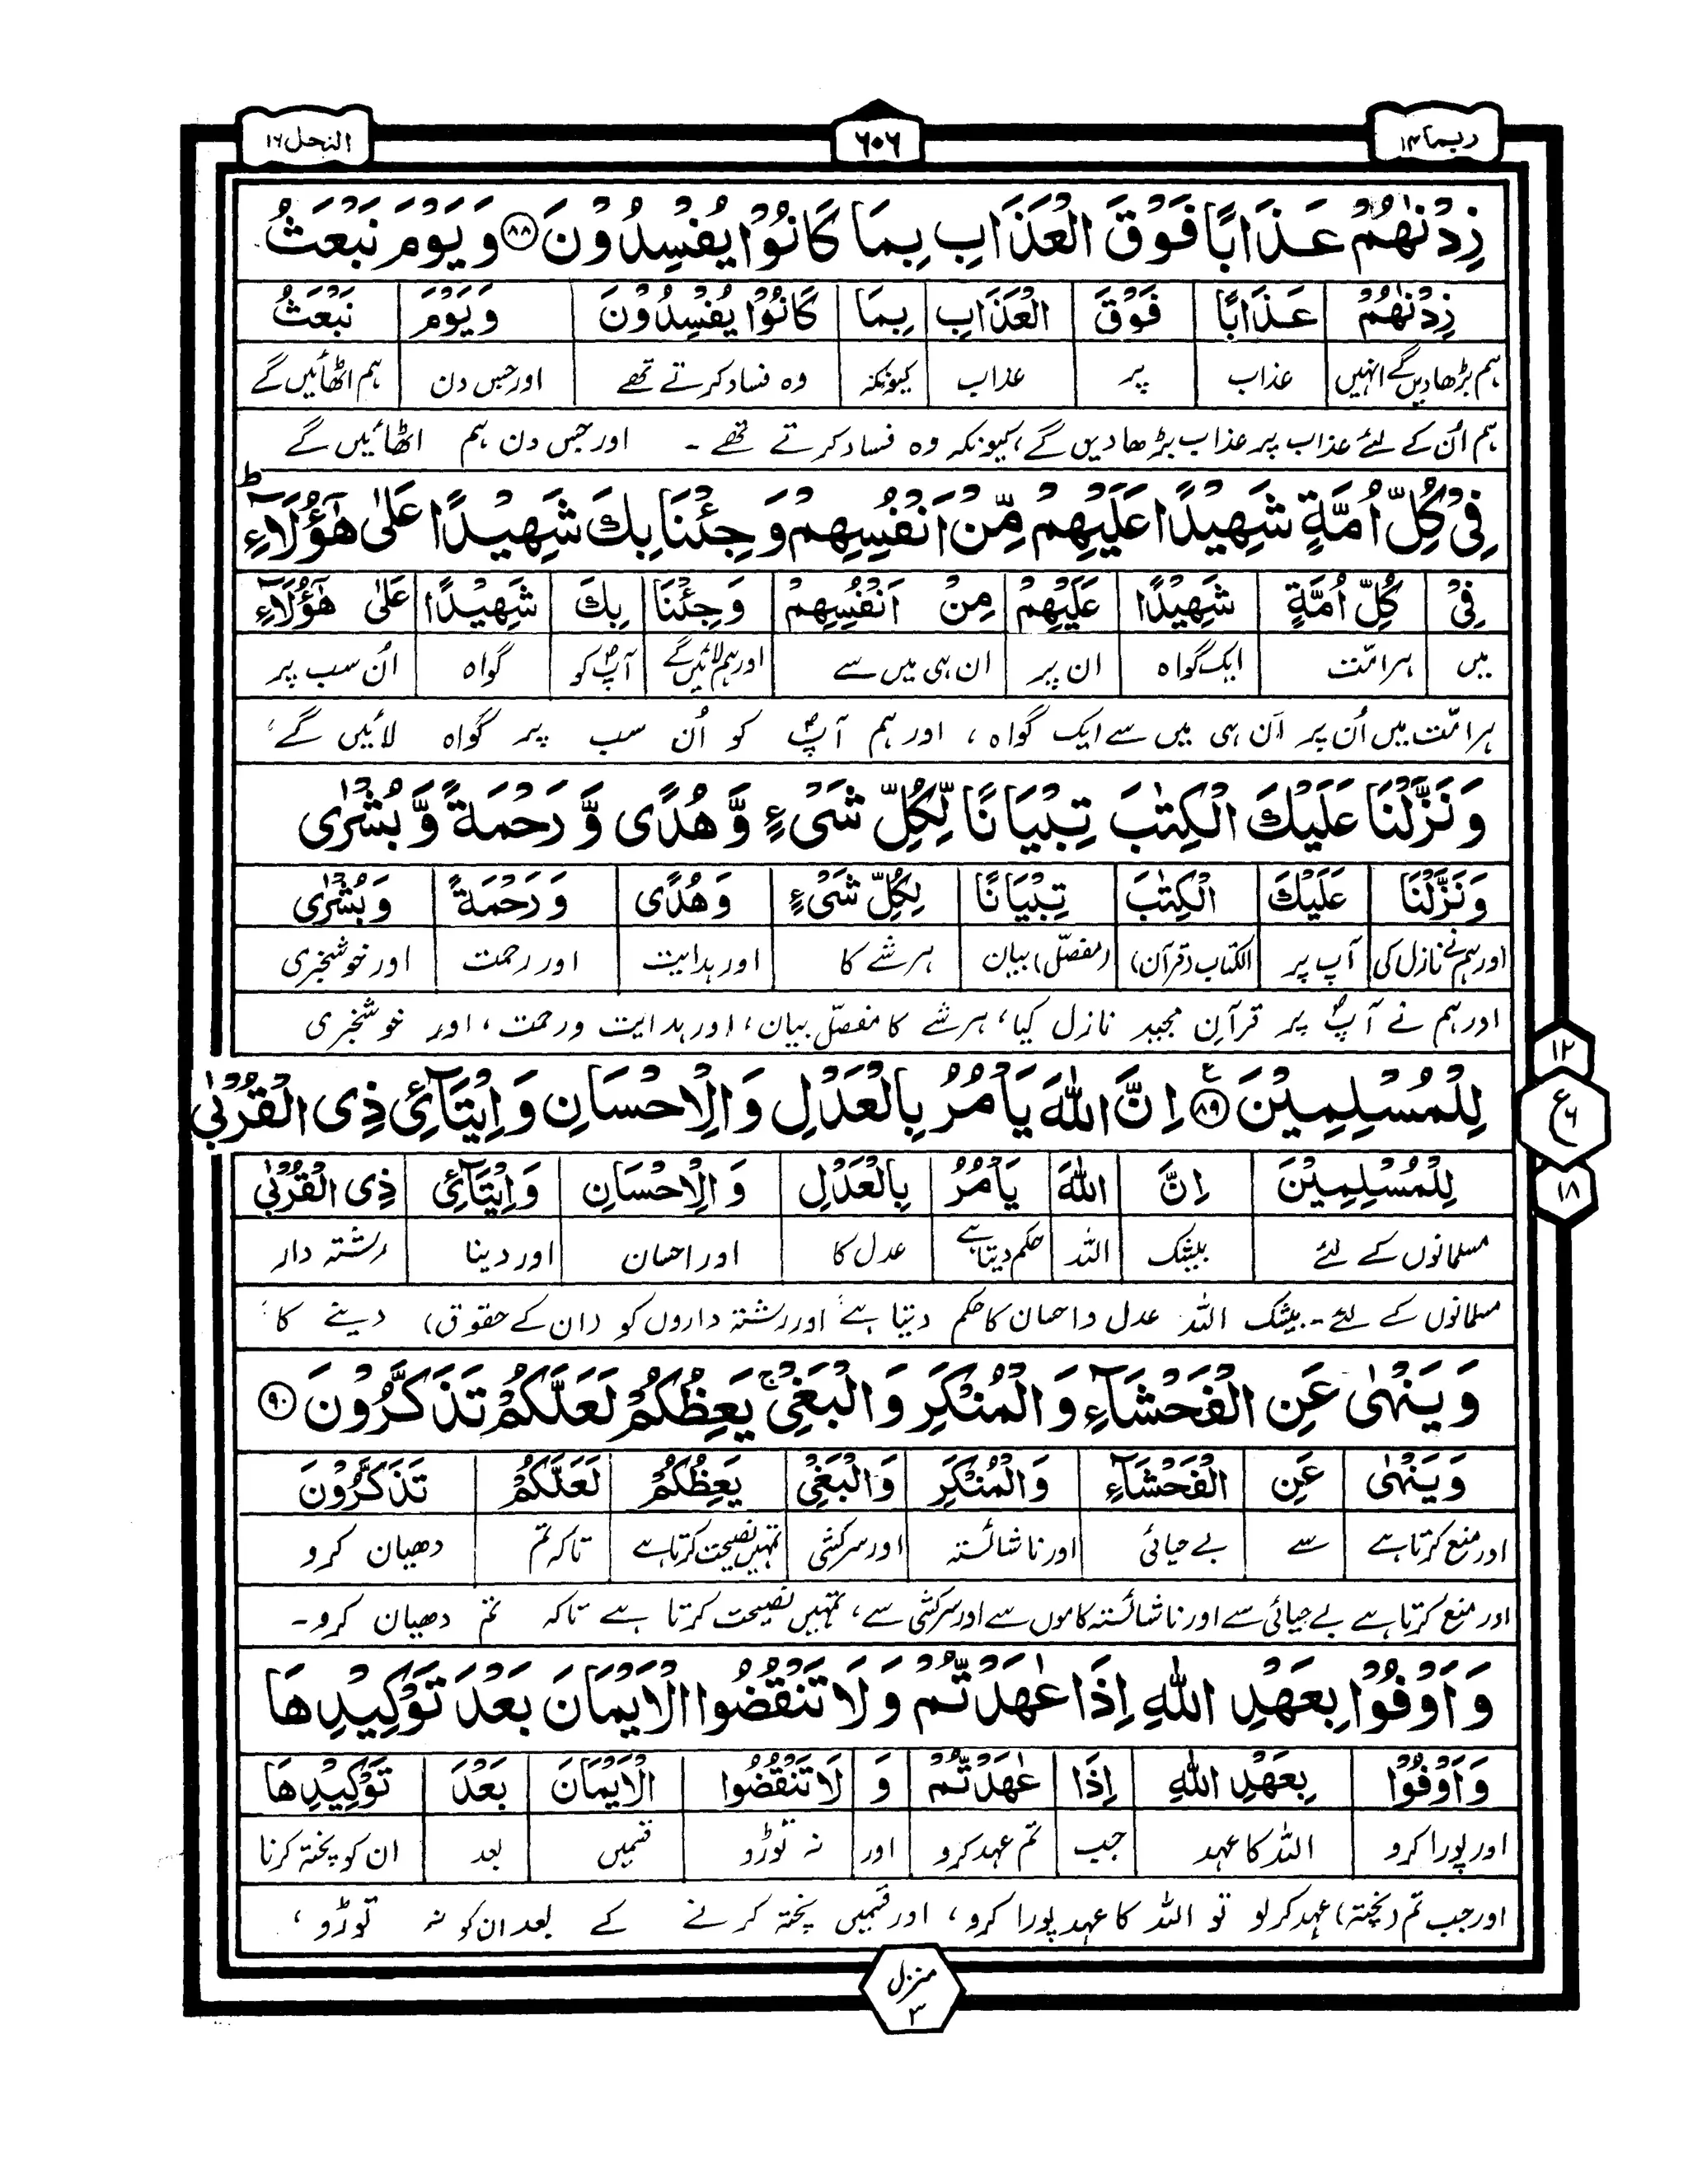 ربما ١٤
٦٠٦
النحل ١٦
زِدْنٰهُمْ عَذَابًا فَوْقَ الْعَذَابِ بِمَا كَانُوْا يُفْسِدُوْنَ ﴿٨٨﴾ وَيَوْمَ نَبْعَثُ
زِدْنٰهُمْ عَذَابًا فَوْقَ الْعَذَابِ بِمَا كَانُوْا يُفْسِدُوْنَ وَيَوْمَ نَبْعَثُ
ہم بڑھادیں گے انہیں عذاب پر عذاب کیونکہ وہ فساد کرتے تھے اور جس دن ہم اٹھائیں گے
ہم اُن کے لئے عذاب پر عذاب بڑھا دیں گے، کیونکہ وہ فساد کرتے تھے ۔ اور جس دن ہم اٹھائیں گے
فِيْ كُلِّ اُمَّةٍ شَهِيْدًا عَلَيْهِمْ مِّنْ اَنْفُسِهِمْ وَجِئْنَا بِكَ شَهِيْدًا عَلٰى هٰٓؤُلَآءِ ؕ
فِيْ كُلِّ اُمَّةٍ شَهِيْدًا عَلَيْهِمْ مِنْ اَنْفُسِهِمْ وَجِئْنَا بِكَ شَهِيْدًا عَلٰى هٰٓؤُلَآءِ
میں ہر امّت ایک گواہ ان پر ان ہی میں سے اور ہم لائیں گے آپؐ کو گواہ اُن سب پر
ہر امّت میں اُن پر اُن ہی میں سے ایک گواہ ، اور ہم آپؐ کو اُن سب پر گواہ لائیں گے،
وَنَزَّلْنَا عَلَيْكَ الْكِتٰبَ تِبْيَانًا لِّكُلِّ شَيْءٍ وَّهُدًى وَّرَحْمَةً وَّبُشْرٰى
وَنَزَّلْنَا عَلَيْكَ الْكِتٰبَ تِبْيَانًا لِكُلِّ شَيْءٍ وَهُدًى وَرَحْمَةً وَبُشْرٰى
اور ہم نے نازل کی آپ پر الکتاب (قرآن) (مفصّل) بیان ہر شے کا اور ہدایت اور رحمت اور خوشخبری
اور ہم نے آپؐ پر قرآنِ مجید نازل کیا، ہر شے کا مفصّل بیان، اور ہدایت ورحمت ، اور خوشخبری
لِلْمُسْلِمِيْنَ ﴿٨٩﴾ ع اِنَّ اللّٰهَ يَاْمُرُ بِالْعَدْلِ وَالْاِحْسَانِ وَاِيْتَآئِ ذِى الْقُرْبٰى
١٢
ع ٦
١٨
لِلْمُسْلِمِيْنَ اِنَّ اللّٰهَ يَاْمُرُ بِالْعَدْلِ وَالْاِحْسَانِ وَاِيْتَآئِ ذِى الْقُرْبٰى
مسلمانوں کے لئے بیشک اللہ حکم دیتا ہے عدل کا اور احسان اور دینا رشتہ دار
مسلمانوں کے لئے ۔ بیشک اللہ عدل واحسان کا حکم دیتا ہے اور رشتہ داروں کو (ان کے حقوق) دینے کا
وَيَنْهٰى عَنِ الْفَحْشَآءِ وَالْمُنْكَرِ وَالْبَغْيِ ۚ يَعِظُكُمْ لَعَلَّكُمْ تَذَكَّرُوْنَ ﴿٩٠﴾
وَيَنْهٰى عَنِ الْفَحْشَآءِ وَالْمُنْكَرِ وَالْبَغْيِ يَعِظُكُمْ لَعَلَّكُمْ تَذَكَّرُوْنَ
اور منع کرتا ہے سے بے حیائی اور ناشائستہ اور سرکشی تمہیں نصیحت کرتا ہے تاکہ تم دھیان کرو
اور منع کرتا ہے بے حیائی سے اور ناشائستہ کاموں سے اور سرکشی سے، تمہیں نصیحت کرتا ہے تاکہ تم دھیان کرو۔
وَاَوْفُوْا بِعَهْدِ اللّٰهِ اِذَا عٰهَدْتُّمْ وَلَا تَنْقُضُوا الْاَيْمَانَ بَعْدَ تَوْكِيْدِهَا
وَاَوْفُوْا بِعَهْدِ اللّٰهِ اِذَا عٰهَدْتُّمْ وَ لَا تَنْقُضُوا الْاَيْمَانَ بَعْدَ تَوْكِيْدِهَا
اور پورا کرو اللہ کا عہد جب تم عہد کرو اور نہ توڑو قسمیں بعد ان کو پختہ کرنا
اور جب تم (پختہ) عہد کر لو تو اللہ کا عہد پورا کرو، اور قسمیں پختہ کرنے کے بعد ان کو نہ توڑو ،
منزل
٣